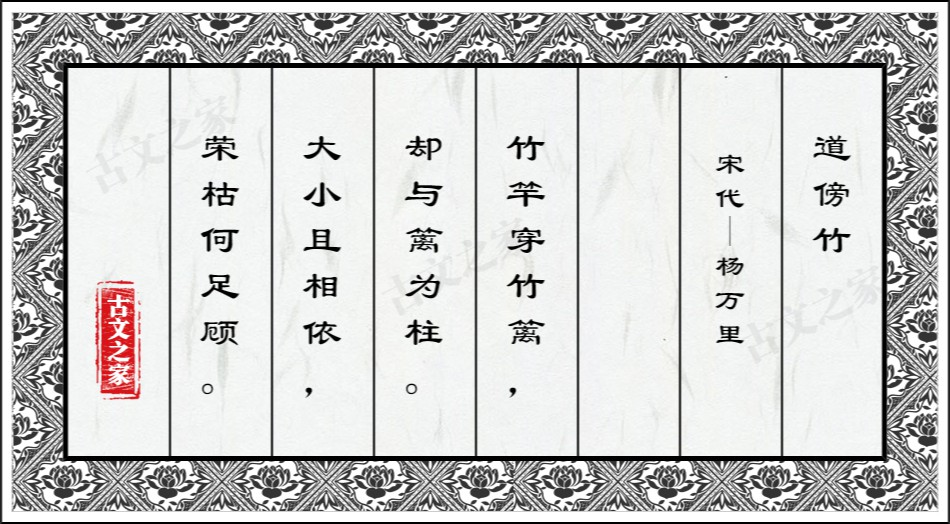 道傍竹
宋代—杨万里
竹竿穿竹篱，
却与篱为柱。
大小且相依，
荣枯何足顾。
古文之家
古文之家
古文之家
古文之家